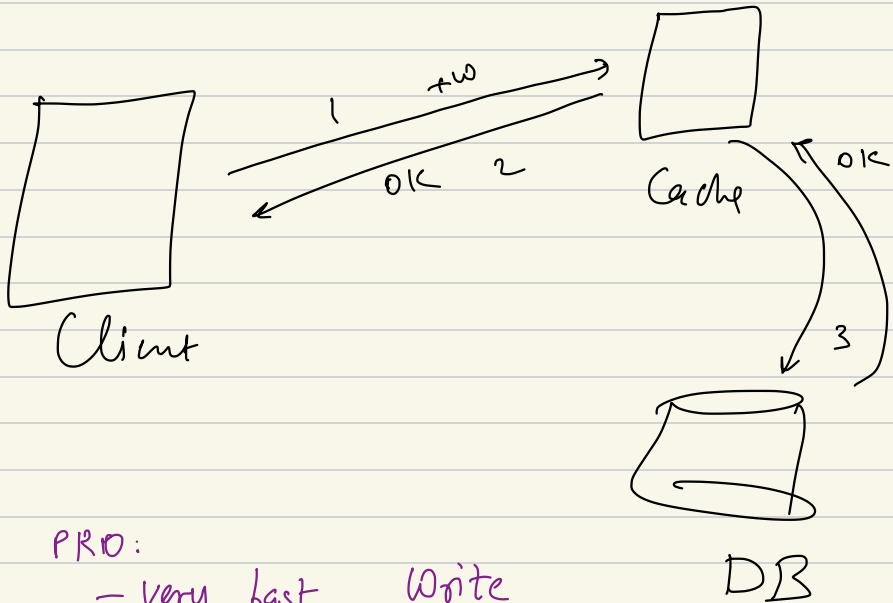 1 +w
OK 2
Cache
OK
Client
3
PRO:
- very fast Write
DB